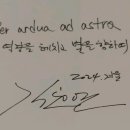 Per ardua ad astra
역경을 헤치고 별을 향하여
2024. 겨울